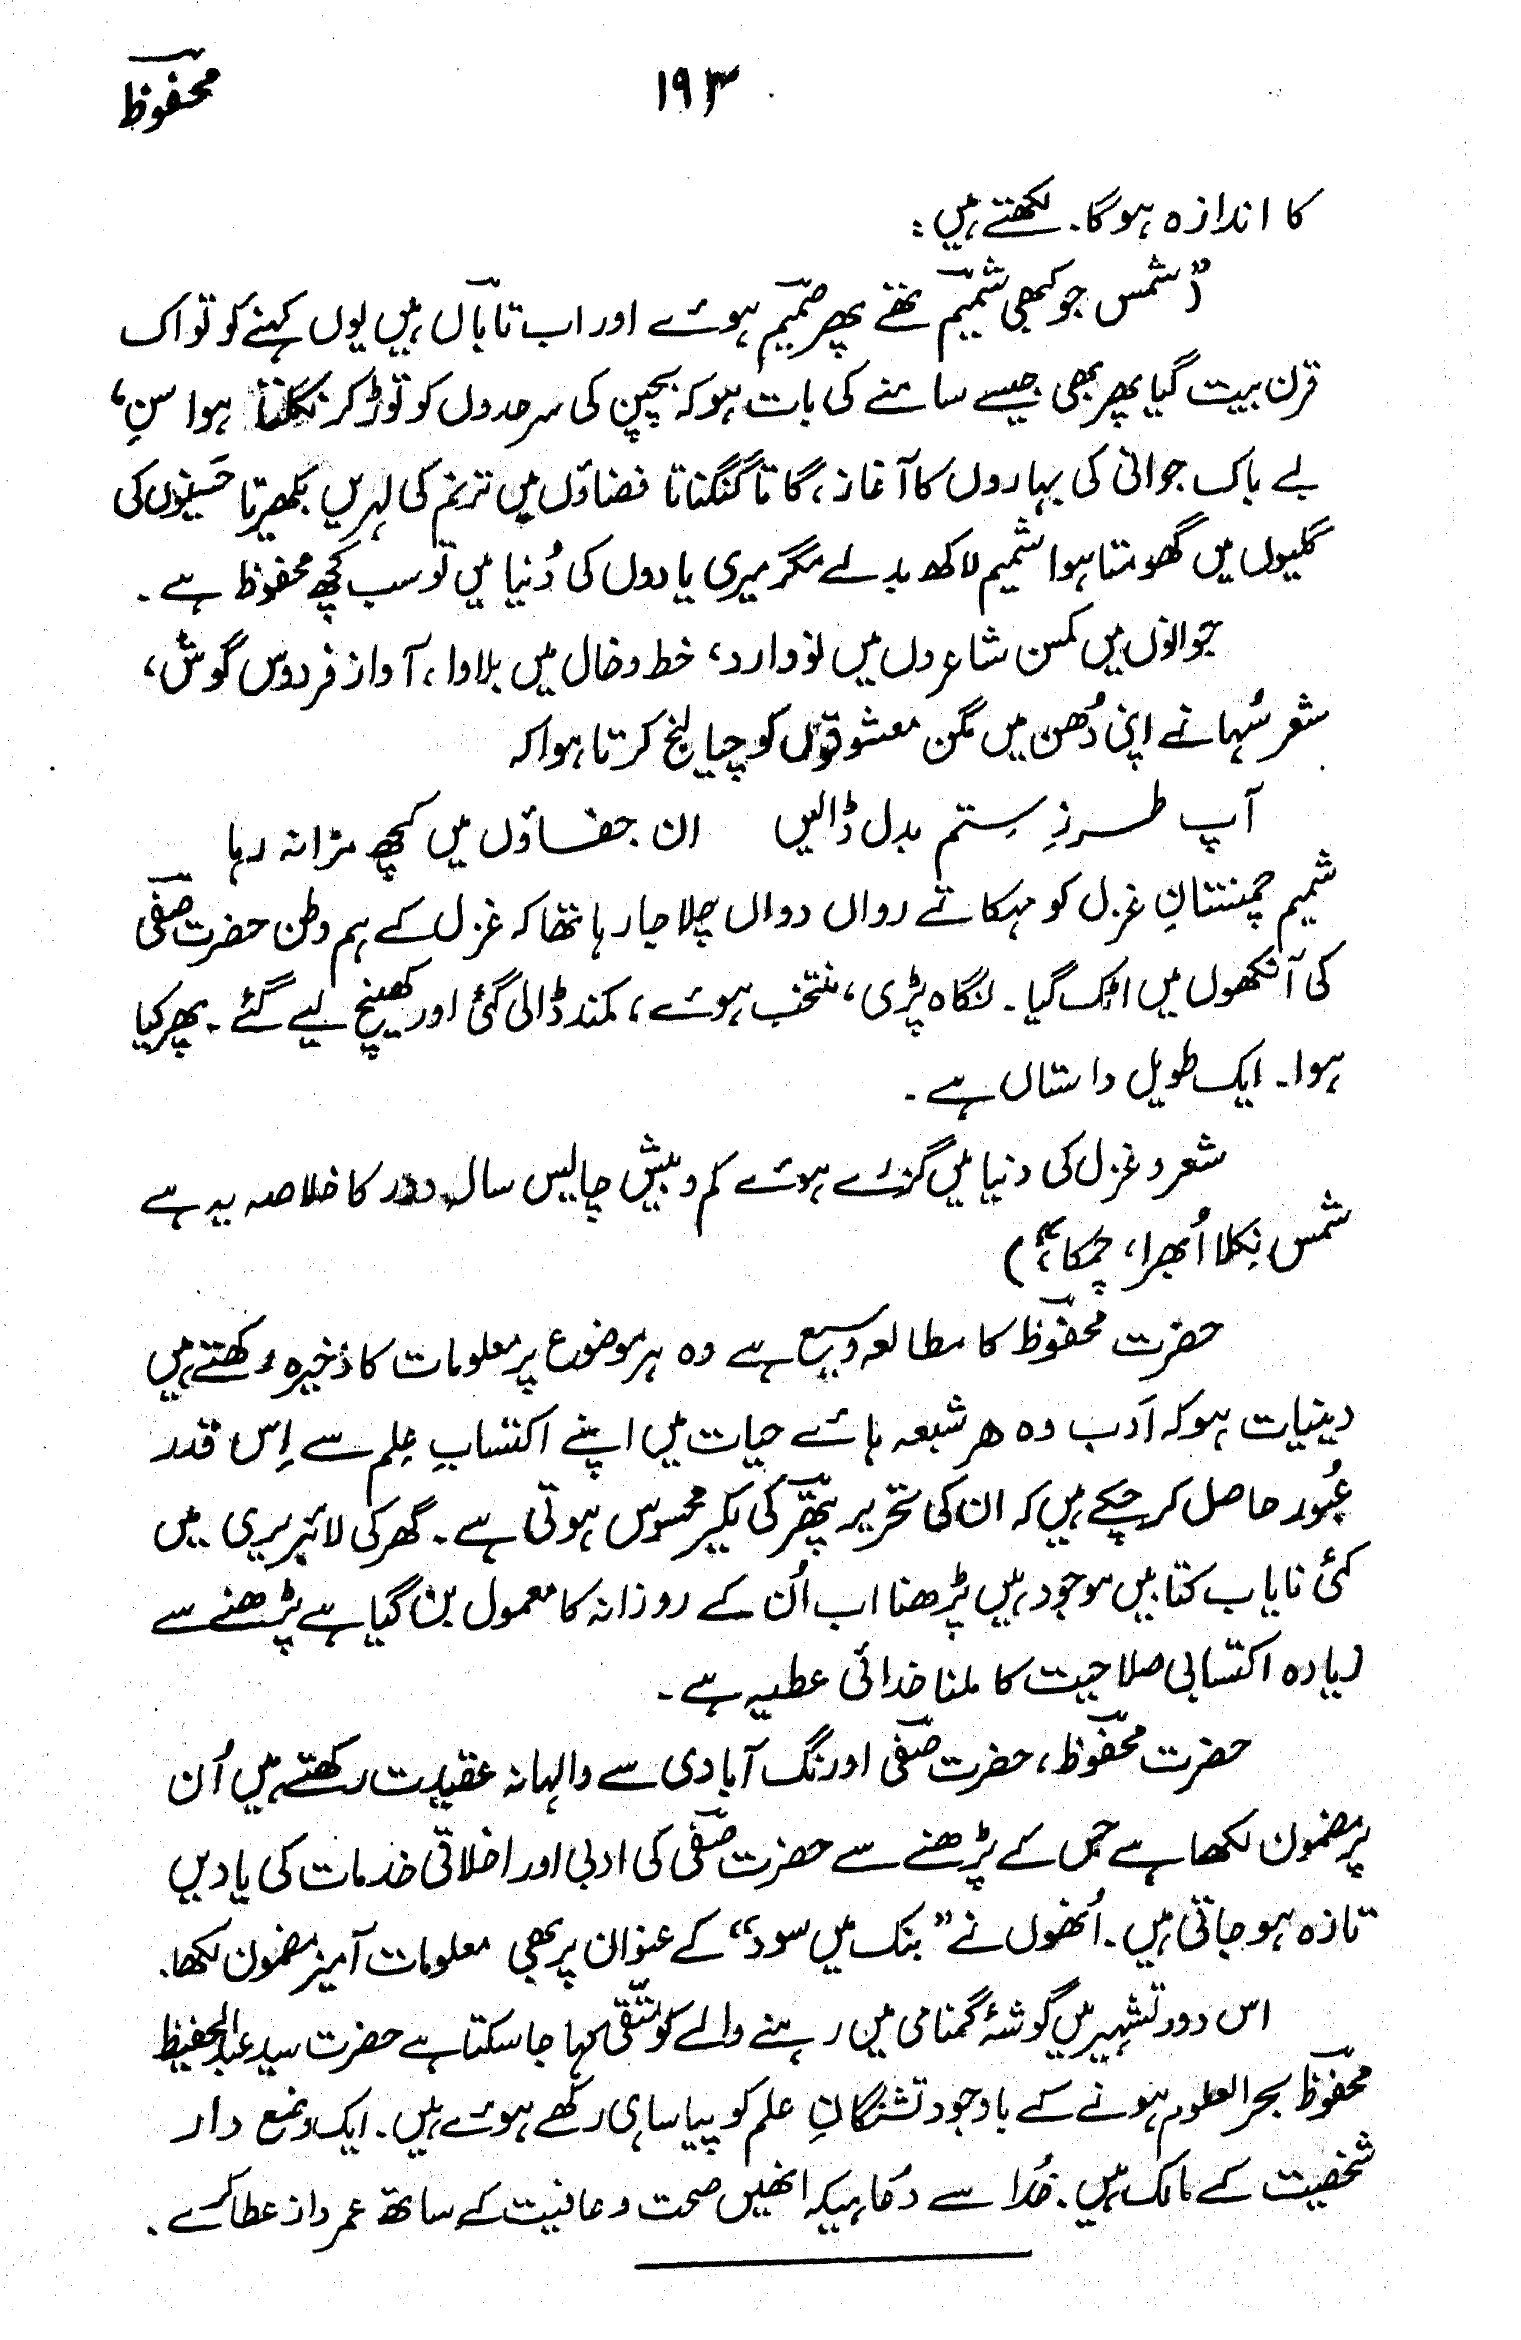 محفوظؔ
۱۹۳
کا اندازہ ہوگا۔ لکھتے ہیں :
(”شمس جو کبھی شمیمؔ تھے پھر صمیمؔ ہوئے اور اب تاباںؔ ہیں یوں کہنے کو تو اک
قرن بیت گیا پھر بھی جیسے سامنے کی بات ہو کہ بچپن کی سرحدوں کو توڑ کر نکلتا ہوا سنِ،
بے باک جوانی کی بہاروں کا آغاز، گاتا گنگناتا فضاؤں میں ترنم کی لہریں بکھیرتا حَسینوں کی
گلیوں میں گھومتا ہوا شمیم لاکھ بدلے مگر میری یادوں کی دُنیا میں تو سب کچھ محفوظ ہے ۔
جوانوں میں کمسن شاعروں میں نووارد، خط و خال میں بلاوا، آواز فردوس گوش،
شعر سُہانے اپنی دُھن میں مگن معشوقوں کو چیالنج کرتا ہوا کہ
آپ طرزِ ستم بدل ڈالیں ان جفاؤں میں کچھ مزا نہ رہا
شمیم چمنستانِ غزل کو مہکاتے رواں دواں چلا جا رہا تھا کہ غزل کے ہم وطن حضرت صفیؔ
کی آنکھوں میں اٹک گیا ۔ نگاہ پڑی، منتخب ہوئے، کمند ڈالی گئی اور کھینچ لیے گئے ۔ پھر کیا
ہوا ۔ ایک طویل داستاں ہے ۔
شعر و غزل کی دنیا میں گزرے ہوئے کم و بیش چالیس سالہ دور کا خلاصہ یہ ہے
شمس نکلا اُبھرا، چمکا“)
حضرت محفوظؔ کا مطالعہ وسیع ہے وہ ہر موضوع پر معلومات کا ذخیرہ رکھتے ہیں
دینیات ہو کہ اَدب وہ ہر شبعہ ہائے حیات میں اپنے اکتسابِ عِلم سے اِس قدر
عُبور حاصل کر چکے ہیں کہ ان کی تحریر پتھّر کی لکیر محسوس ہوتی ہے ۔ گھر کی لائبریری میں
کئی نایاب کتابیں موجود ہیں پڑھنا اب اُن کے روزانہ کا معمول بن گیا ہے پڑھنے سے
زیادہ اکتسابی صلاحیت کا ملنا خدائی عطیہ ہے ۔
حضرت محفوظؔ، حضرت صفیؔ اورنگ آبادی سے والہانہ عقیدت رکھتے ہیں اُن
پر مضمون لکھا ہے جس کے پڑھنے سے حضرت صفیؔ کی ادبی اور اخلاقی خدمات کی یادیں
تازہ ہو جاتی ہیں ۔ اُنھوں نے ”بنک میں سود“ کے عنوان پر بھی معلومات آمیز مضمون لکھا ۔
اس دور تشہیر میں گوشۂ گمنامی میں رہنے والے کو متّقی کہا جا سکتا ہے حضرت سید عبدالحفیظ
محفوظؔ بحرالعلوم ہونے کے باوجود تشنگانِ علم کو پیاسا ہی رکھے ہوئے ہیں ۔ ایک وضع دار
شخصیت کے مالک ہیں ۔ خُدا سے دُعا ہیکہ انھیں صحت و عافیت کے ساتھ عمر دراز عطا کرے ۔